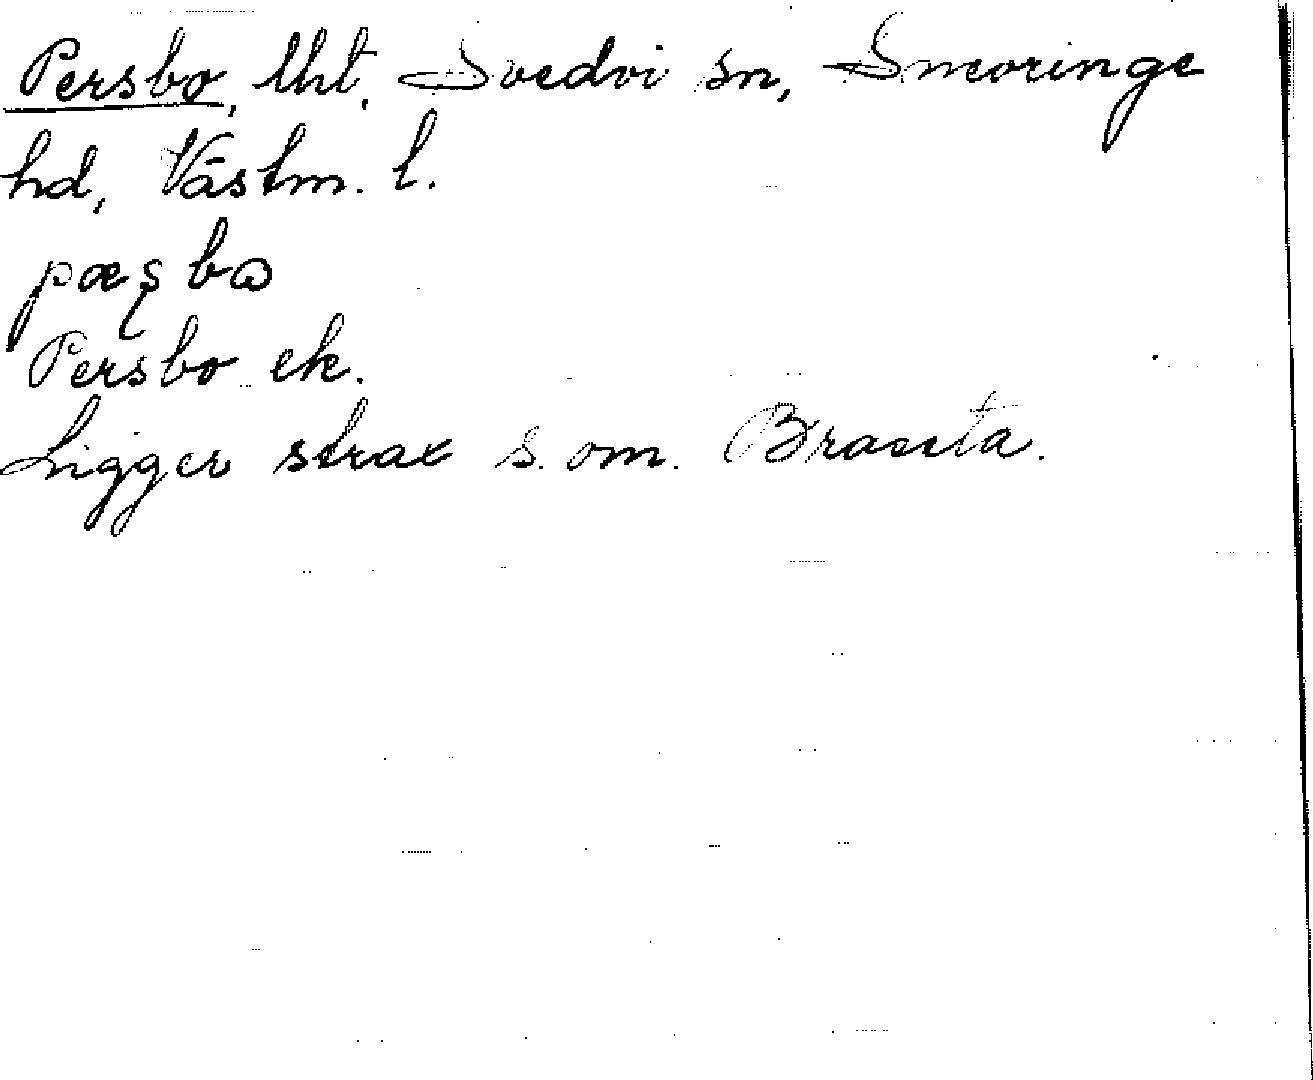 Persbo, lht, Svedvi sn, Snevringe
hd, Västm. l.
pæʂbɷ
Persbo ek.
Ligger strax s. om